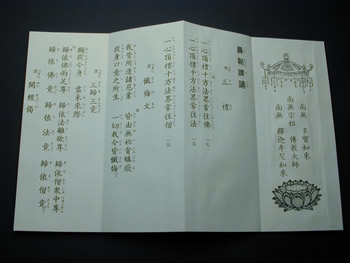 南無 多寶如來
南無宗祖 傳教大師
南無 釋迦牟尼如來
三禮
一心頂禮十方法界常住佛
一心頂禮十方法界常住法
一心頂禮十方法界常住僧
懺悔文
我昔所造諸惡業 皆由無始貪瞋癡
從身口意之所生 一切我今皆懺悔
三歸三竟
願從今身 盡未來際
歸依佛兩足尊 歸依法離欲尊 歸依僧衆中尊
歸依佛竟 歸依法竟 歸依僧竟
開經偈